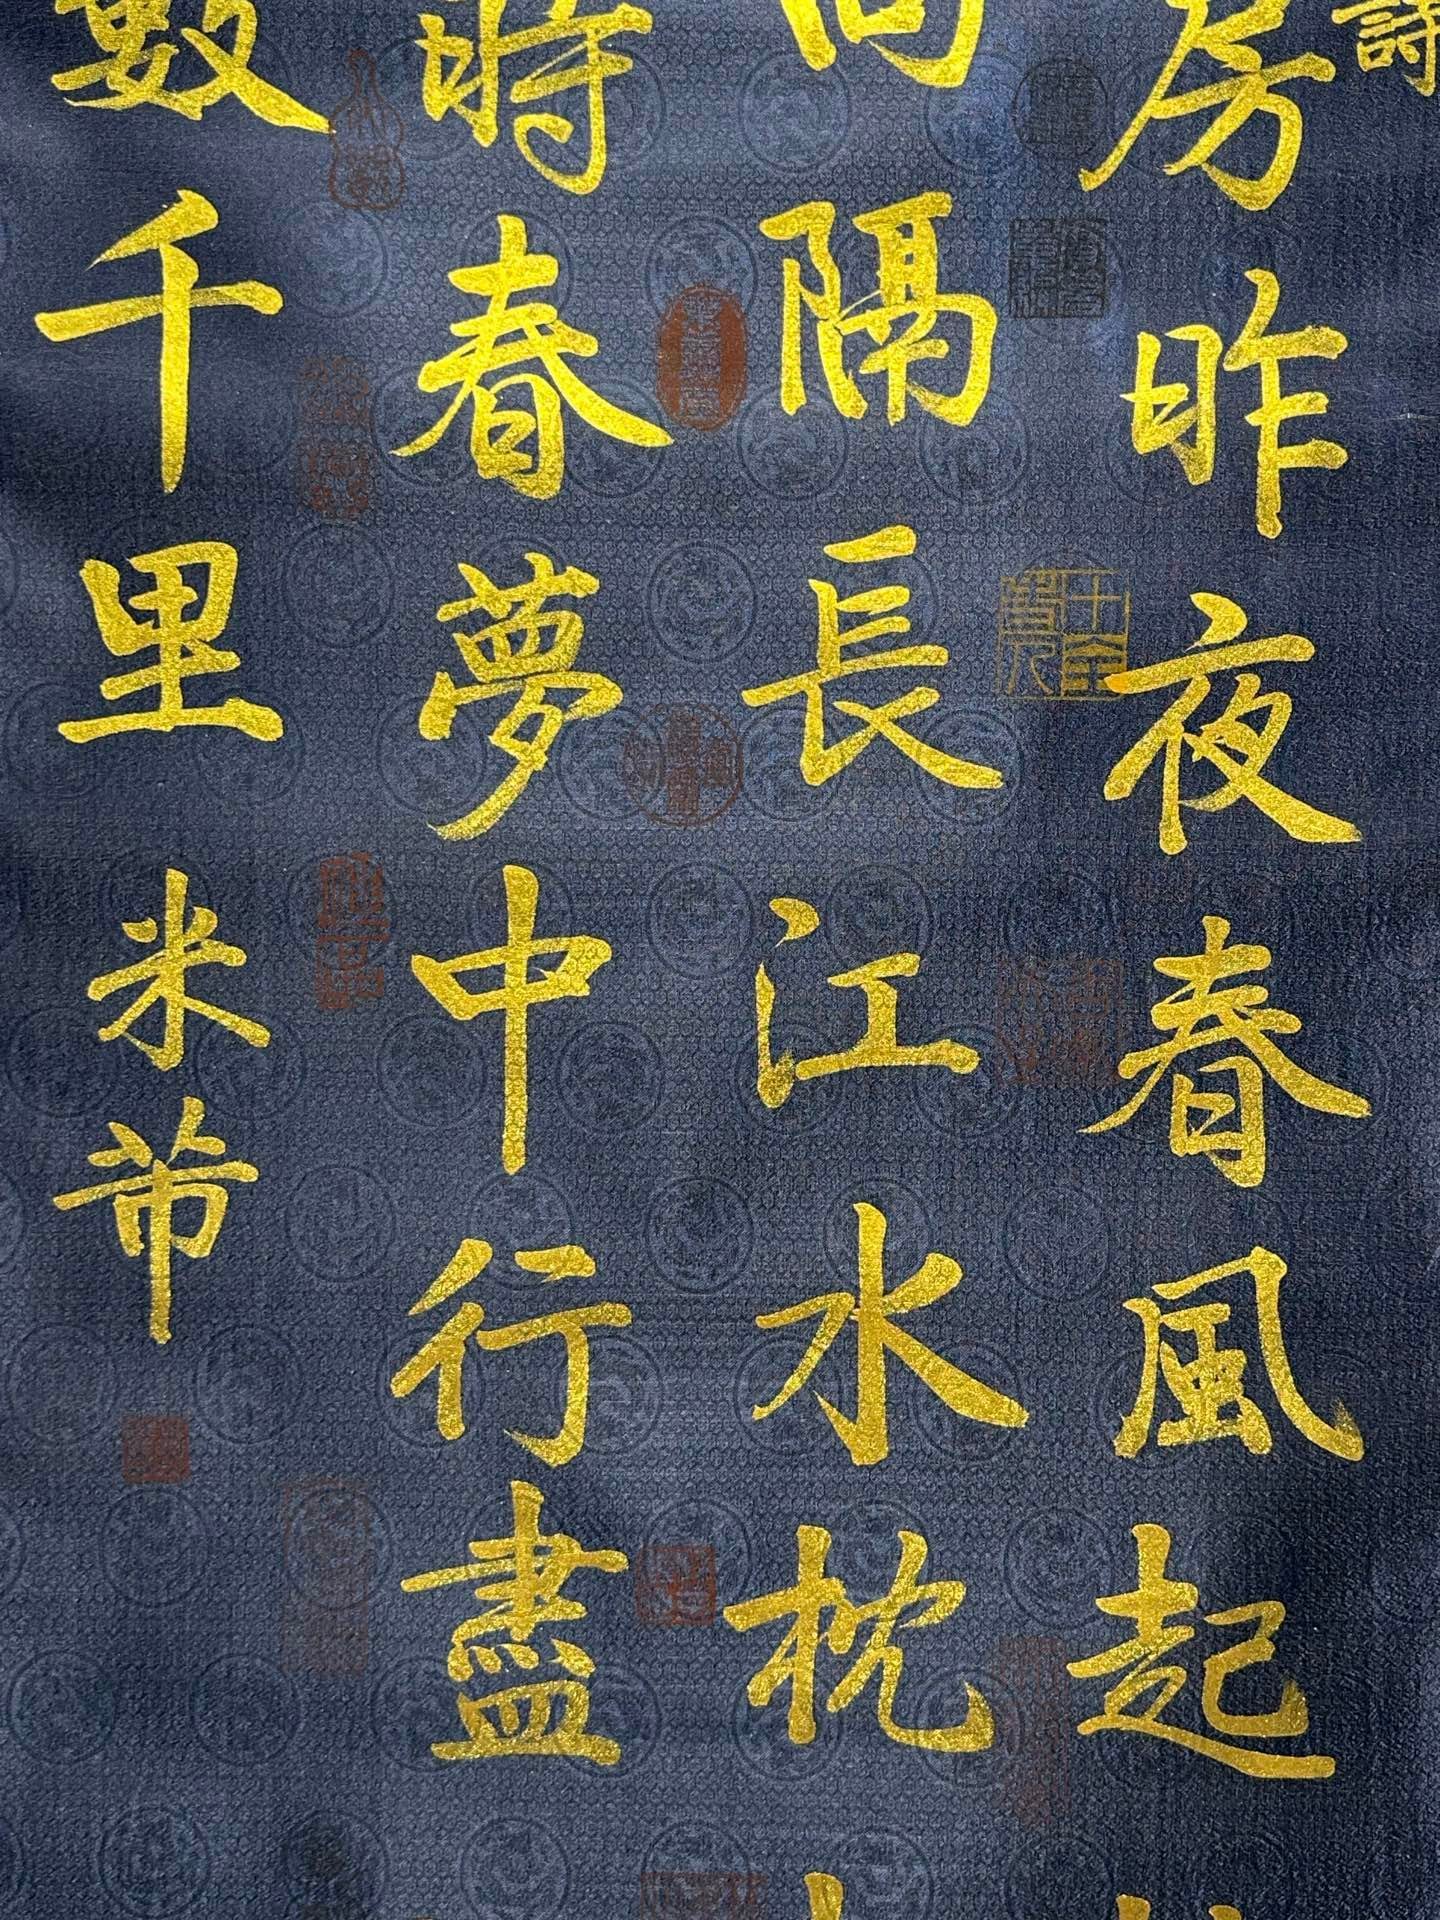 詩
房昨夜春風起
隔長江水枕
時春夢中行盡
數千里 米芾